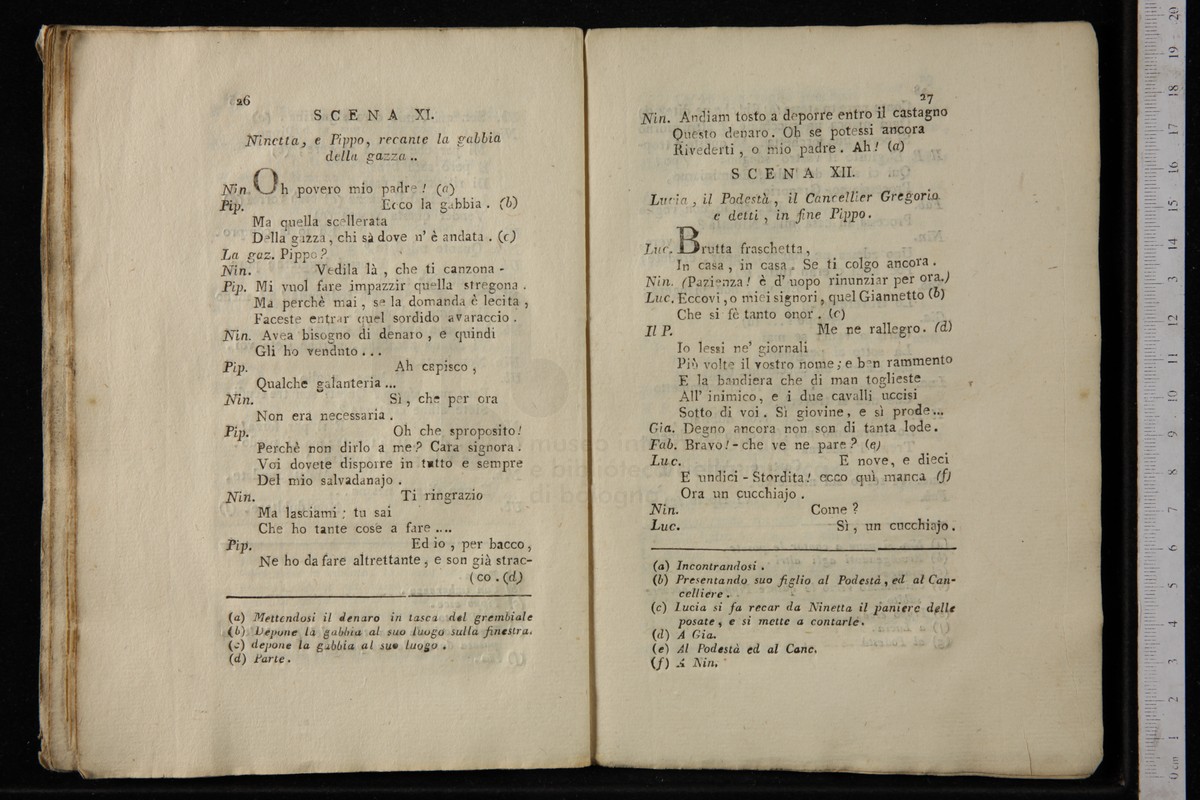 26
SCENA XI.
Ninetta, e Pippo, recante la gabbia
della gazza..
Nin. Oh povero mio padre! (a)
Pip. Ecco la gabbia. (b)
Ma quella scellerata
Della gazza, chi sà dove n' è andata. (c)
La gaz. Pippo?
Nin. Vedila là, che ti canzona-
Pip. Mi vuol fare impazzir quella stregona.
Ma perchè mai, se la domanda è lecita,
Faceste entrar quel sordido avaraccio.
Nin. Avea bisogno di denaro, e quindi
Gli ho venduto...
Pip. Ah capisco,
Qualche galanteria...
Nin. Sì, che per ora
Non era necessaria.
Pip. Oh che sproposito!
Perchè non dirlo a me? Cara signora:
Voi dovete disporre in tutto e sempre
Del mio salvadanajo.
Nin. Ti ringrazio
Ma lasciami: tu sai
Che ho tante cose a fare....
Pip. Ed io, per bacco,
Ne ho da fare altrettante, e son già strac-
(co. (d)
(a) Mettendosi il denaro in tasca del grembiale
(b) Depone la gabbia al suo luogo sulla finestra.
(c) depone la gabbia al suo luogo.
(d) Parte.
27
Nin. Andiam tosto a deporre entro il castagno
Questo denaro. Oh se potessi ancora
Rivederti, o mio padre. Ah! (a)
SCENA XII.
Lucia, il Podestà, il Cancellier Gregorio
e detti, in fine Pippo.
Luc. Brutta fraschetta,
In casa, in casa. Se ti colgo ancora.
Nin. (Pazienza! è d' uopo rinunziar per ora.)
Luc. Eccovi, o miei signori, quel Giannetto (b)
Che si fè tanto onor. (c)
Il P. Me ne rallegro. (d)
Io lessi ne' giornali
Più volte il vostro nome; e ben rammento
E la bandiera che di man toglieste
All' inimico, e i due cavalli uccisi
Sotto di voi. Sì giovine, e sì prode...
Gia. Degno ancora non son di tanta lode.
Fab. Bravo!-che ve ne pare? (e)
Luc. E nove, e dieci
E undici - Stordita! ecco quì manca (f)
Ora un cucchiajo.
Nin. Come?
Luc. Sì, un cucchiajo.
(a) Incontrandosi.
(b) Presentando suo figlio al Podestà, ed al Can-
celliere.
(c) Lucia si fa recar da Ninetta il paniere delle
posate, e si mette a contarle.
(d) A Gia.
(e) Al Podestà ed al Canc.
(f) A Nin.